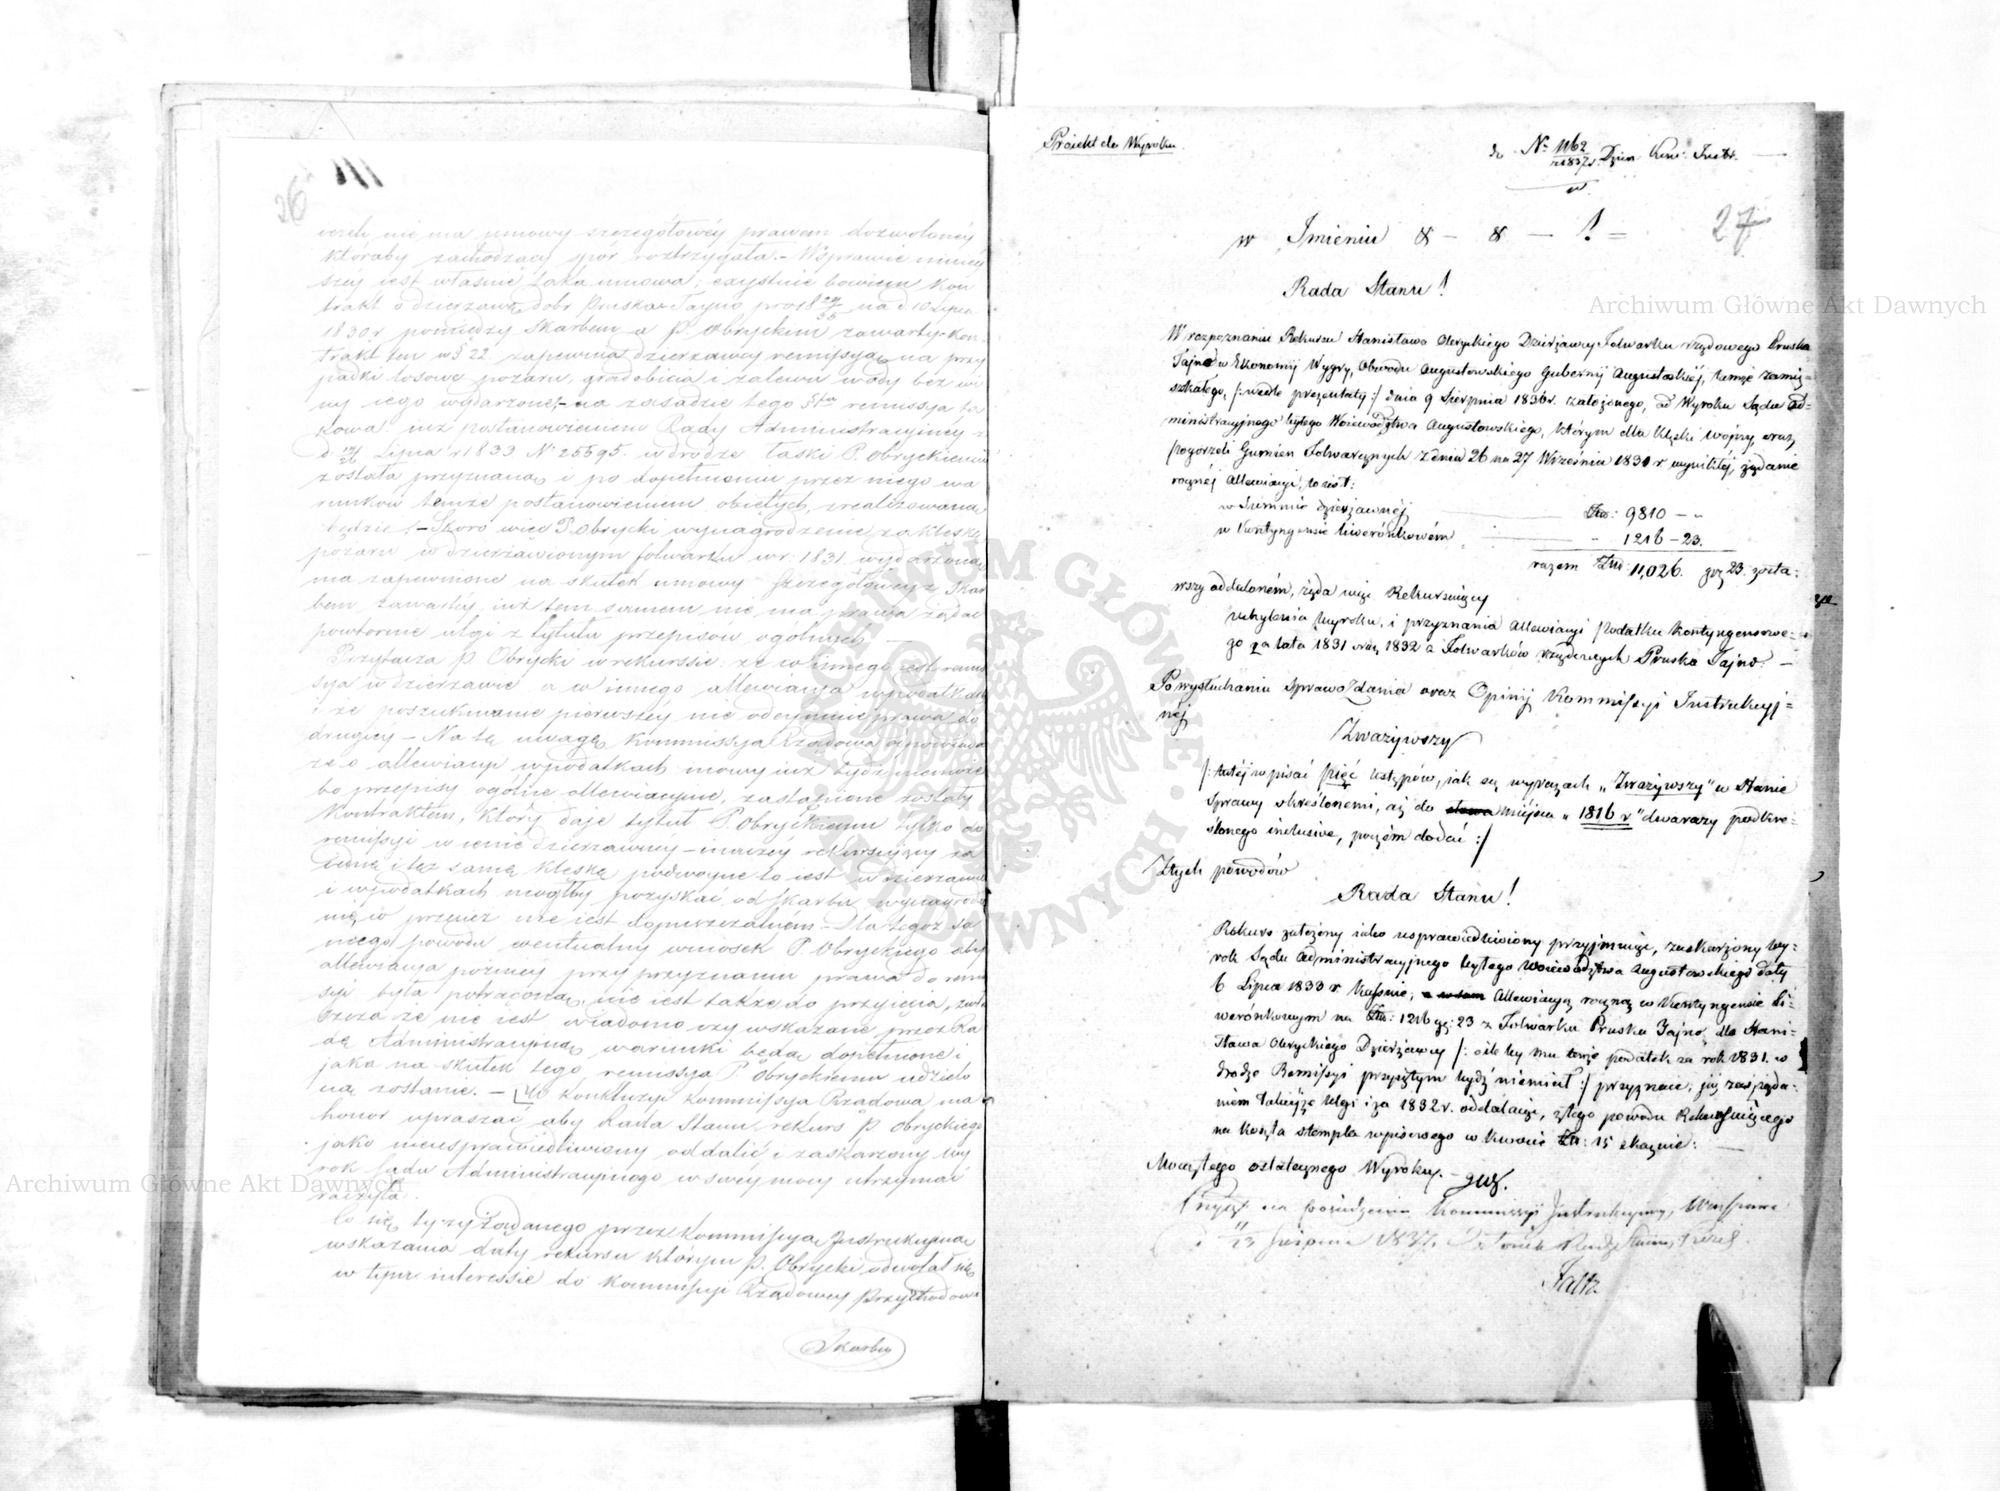 26
111
jeżeli nie ma umowy szczegółowéy prawem dozwolonéy
któraby zachodzący spór roztrzygała. – W sprawie niniey
széy iest właśnie taka umowa; exystuie bowiem kon
trakt o dzierżawę dobr Pruska Tayno pro 18 24/35 na d 10 Lipca
1830 r. pomiędzy Skarbem a P. Obryckim zawarty – kon
trakt ten w § 22 zapewnia dzierżawcy remissyą na przy
padki losowe pożaru, gradobicia i zalewu wody bez wi
ny iego wydarzone, – na zasadzie tego §fu remissya ta
kowa już postanowieniem Rady Administracyiney z
d. Lipca r 1833 N 25595. w drodze łaski P. Obryckiemu
została przyznaną i po dopełnieniu przez niego wa
runków temże postanowieniem obiętych, zrealizowana
będzie. – Skoro więc P. Obrycki wynagrodzenie za klęskę
pożaru w dzierżawionym folwarku w r. 1831 wydarzoną
ma zapewnione na skutek umowy szczegółowéy z Skar
bem zawartéy, iuż tem samem nie ma prawa żądać
powtorné ulgi z tytułu przepisow ogólnych. —
Przytacza P. Obrycki w rekurssie: że co innego iest remis
sya w dzierżawie a co innego allewiacya w podatkach
i że poszukiwanie pierwszéy nie odeymuie prawa do
drugiey – Na tę uwagę Kommissya Rządowa odpowiada
że o allewiacyi w podatkach mowy iuż bydź nie może
bo przepisy ogólne allewiacyine, zastąpione zostały
Kontraktem, który daje tytuł P. Obryckiemu tylko do
remissyi w cenie dzierżawney – inaczey rekurssuiący za
iedną i też samę klęskę podwoyne to iest w dzierżawie
i w podatkach mogłby pozyskać od Skarbu wynagrodze
nie, co przecież nie iest dopuszczalném – Dla tegoż sa
mego powodu ewentualny wniosek P. Obryckiego aby
allewiacya poźniey przy przyznaniu prawa do remis
syi była potrąconą, nie iest także do przyięcia, zwła
szcza że nie iest wiadomo czy wskazane przez Ra
dę Administracyiną warunki będą dopełnione i
jaka na skutek tego remissya P Obryckiemu udzielo
ną zostanie. – W konkluzyi Kommissya Rządowa ma
honor upraszać aby Rada Stanu rekurs P. Obryckiego
jako nieusprawiedliwiony oddalić i zaskarżony wy
rok Sądu Administracyinego w swéy mocy utrzymać
raczyła.
Co się tyczy żądanego przez Kommissyą Instrukcyiną
wskazania daty rekursu którym P. Obrycki odwołał się
w tym interessie do Kommissyi Rządowey Przychodow
Skarbu
Proiekt do Wyroku.
do N° 1162/r 1837 r. Dzien. Kom. Instr. —
27
w Imieniu & – & — ! =
Rada Stanu!
W rozpoznaniu Rekursu Stanisława Obryckiego Dzierżawcy Folwarku rządowego Pruska
Tajno w Ekonomij Wygry, Obwodu Augustowskiego Gubernij Augustowskiéj, tamże zamie=
szkałego, /: wedle prezentaty :/ dnia 9 Sierpnia 1836 r. założonego, od Wyroku Sądu Ad=
ministracyjnego byłego Województwa Augustowskiego, którym dla klęski wojny, oraz
pogorzeli Gumien Folwarcznych z dnia 26 na 27 Września 1831 r wynikłéj, żądanie
rocznéj Allewiacyi, to iest:
w Summie dzierżawnéj — Złp: 9810 – „
w Kontyngensie liwerunkowém — „ 1216 – 23.
razem Złp: 11,026. gr 23. zosta=
wszy oddalonem, żąda więc Rekursuiący
uchylenia wyroku, i przyznania Allewiacyi podatku kontyngensowe=
go za lata 1831 oraz 1832 z Folwarków rządowych Pruska Tajno. —
Po wysłuchaniu Sprawozdania oraz Opinij Kommissyi Instrukcyj=
néj
Zważywszy
/: tutéj wpisać pięć Ustępów, iak są wyrazach „Zważywszy" w Stanie
Sprawy okréślonemi, aż do słowa miejsca „1816 r" dwarazy podkre=
slonego inclusive, poczém dodać :/
Z tych powodów
Rada Stanu!
Rekurs założony iako usprawiedliwiony przyjmuie, zaskarżony wy=
rok Sądu Administracyjnego byłego Województwa Augustowskiego daty
6 Lipca 1833 r kassuie, Allewiacyą roczną w Kontyngensie Li=
werunkowym na Złp: 1216 gr: 23 z Folwarku Pruska Tajno, dla Stani=
sława Obryckiego Dzierżawcy /: o ile by mu tenże podatek za rok 1831. w
drodze Remissyi przyiętym bydź niemiał :/ przyznaie, ją zaś żąda=
niem takiéjże Ulgi i za 1832 r. oddalaiąc, z tego powodu Rekursuiącego
na koszta stempla wpisowego w kwocie Złp: 15 skazuie: —
Mocą tego ostatecznego Wyroku. —
Przyjęt na posiedzeniu Kommissyi Instrukcyjney, w Warszawie
d. 11/23 Sierpnia 1837. Członek Rady Stanu,
Faltz
Archiwum Główne Akt Dawnych
Archiwum Główne Akt Dawnych
ARCHIWUM GŁÓWNE AKT DAWNYCH